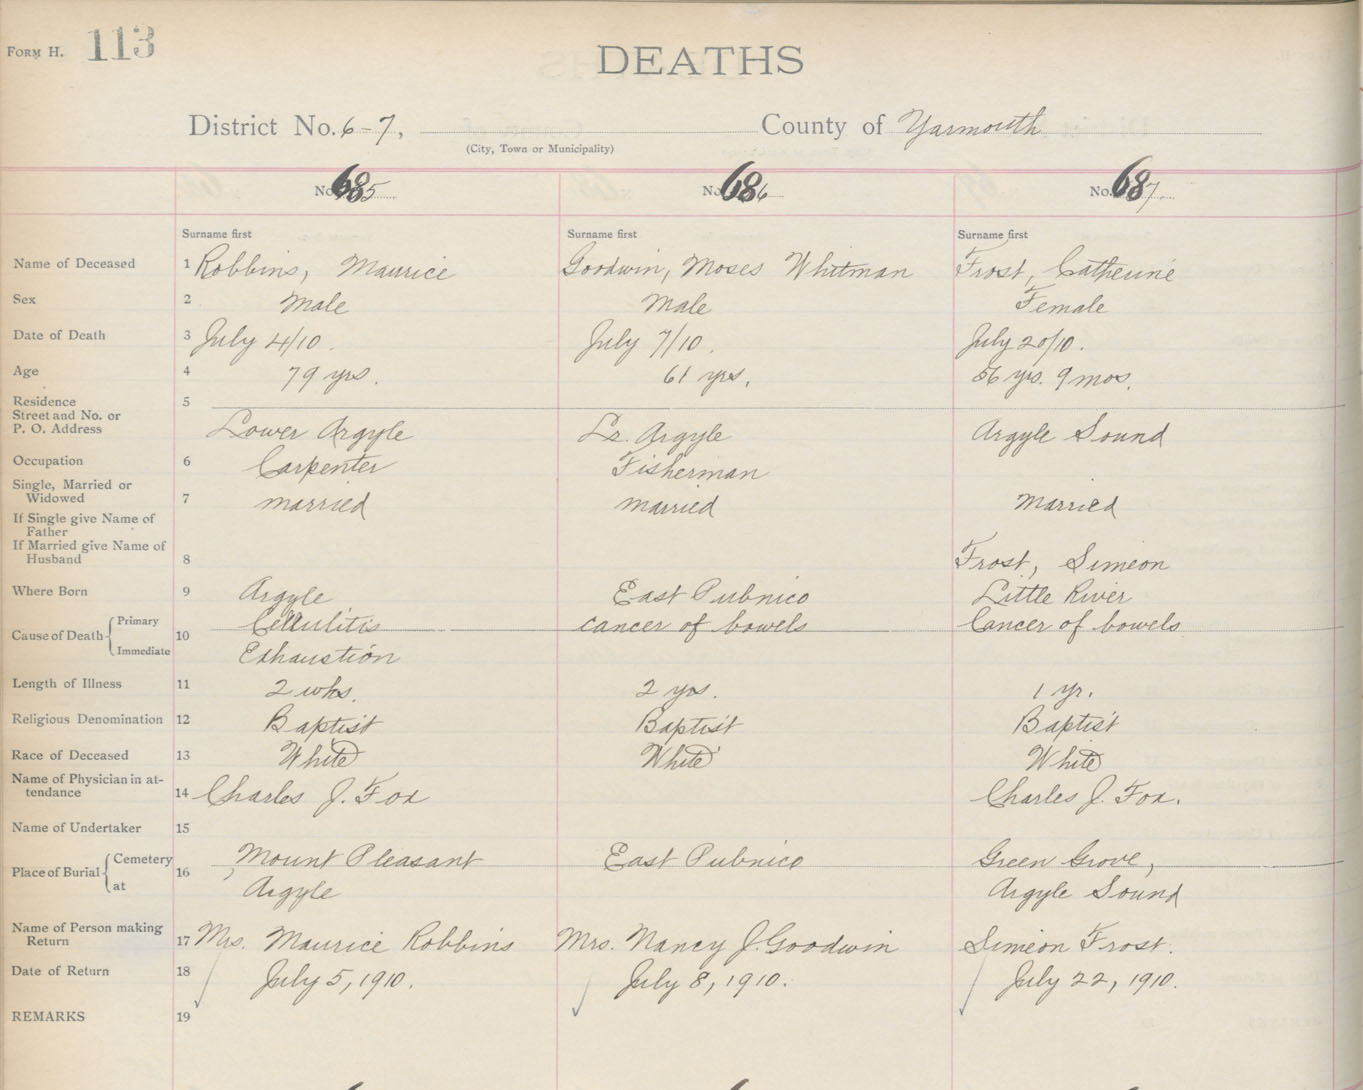 FORM H. 113
DEATHS
District No. 6-7, County of Yarmouth
(City, Town or Municipality)
No. 685 No. 686 No. 687
Surname first Surname first Surname first
Name of Deceased 1 Robbins, Maurice Goodwin, Moses Whitman Frost, Catherine
Sex 2 Male Male Female
Date of Death 3 July 4/10. July 7/10. July 20/10.
Age 4 79 yrs. 61 yrs. 56 yrs. 9 mos.
Residence 5
Street and No. or
P. O. Address Lower Argyle Lr. Argyle Argyle Sound
Occupation 6 Carpenter Fisherman
Single, Married or
Widowed 7 married married Married
If Single give Name of
Father
If Married give Name of
Husband 8 Frost, Simeon
Where Born 9 Argyle East Pubnico Little River
Cause of Death Primary 10 Cellulitis cancer of bowels Cancer of bowels
Immediate Exhaustion
Length of Illness 11 2 wks. 2 yrs. 1 yr.
Religious Denomination 12 Baptist Baptist Baptist
Race of Deceased 13 White White White
Name of Physician in at-
tendance 14 Charles J. Fox Charles J. Fox.
Name of Undertaker 15
Place of Burial Cemetery 16 Mount Pleasant East Pubnico Green Grove,
at Argyle Argyle Sound
Name of Person making
Return 17 Mrs. Maurice Robbins Mrs. Nancy J. Goodwin Simeon Frost.
Date of Return 18 July 5, 1910. July 8, 1910. July 22, 1910.
REMARKS 19